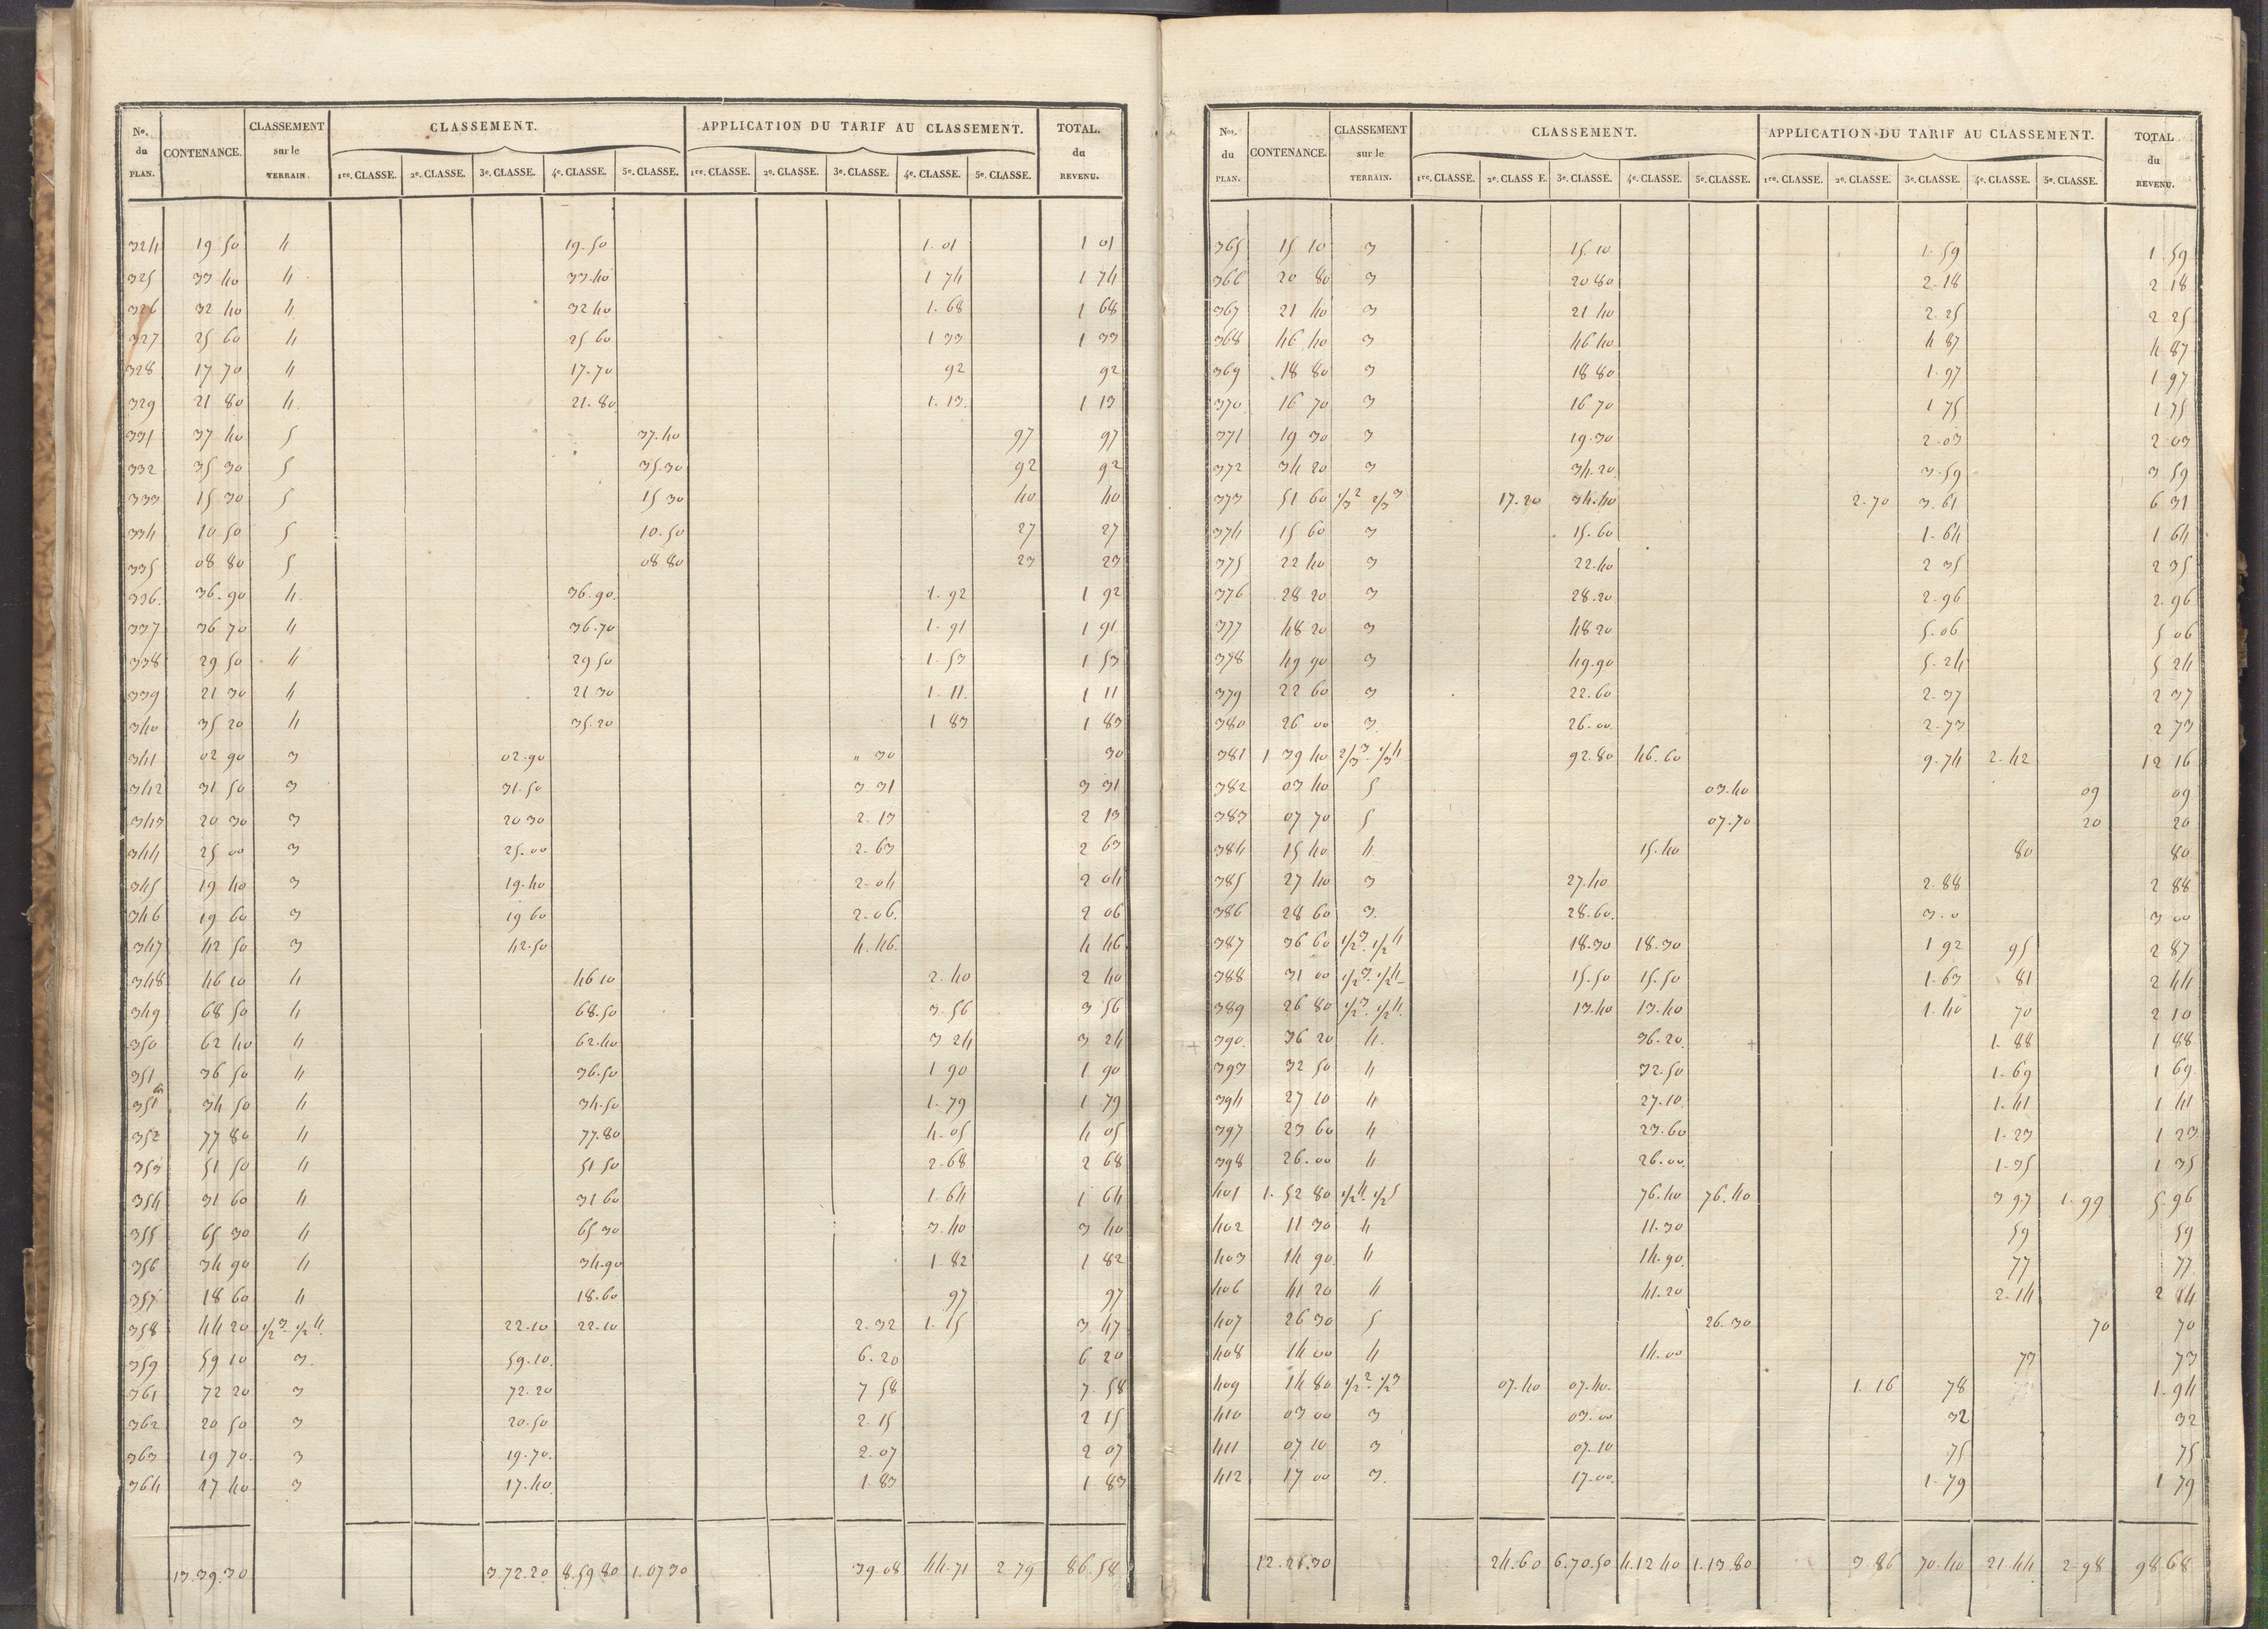 Nos. du PLAN. CONTENANCE. CLASSEMENT sur le TERRAIN. CLASSEMENT. APPLICATION DU TARIF AU CLASSEMENT. TOTAL. du REVENU.
1re. CLASSE. 2e. CLASSE. 3e. CLASSE. 4e. CLASSE. 5e. CLASSE. 1re. CLASSE. 2e. CLASSE. 3e. CLASSE. 4e. CLASSE. 5e. CLASSE.
324 19 50 4 19.50 1.01 1 01
325 33 40 4 33.40 1 74 1 74
326 32 40 4 32 40 1.68 1 68
327 25 60 4 25 60 1 33 1 33
328 17 70 4 17.70 92 92
329 21 80 4. 21.80 1.13. 1 13
331 37 40 5 37.40 97 97
332 35 30 5 35.30 92 92
333 15 30 5 15 30 40 40
334 10 50 5 10.50 27 27
335 08 80 5 08 80 23 23
336. 36.90 4. 36.90. 1.92 1 92
337 36 70 4 36.70 1.91 1 91
338 29 50 4 29 50 1.53 1 53
339 21 30 4 21 30 1.11. 1 11
340 35 20 4 35.20 1 83 1 83
341 02 90 3 02.90 " 30 30
342 31 50 3 31.50 3.31 3 31
343 20 30 3 20 30 2.13 2 13
344 25 00 3 25.00 2.63 2 63
345 19 40 3 19.40 2.04 2 04
346 19 60 3 19 60 2.06. 2 06
347 42 50 3 42.50 4.46. 4 46
348 46 10 4 46 10 2.40 2 40
349 68 50 4 68.50 3.56 3 56
350 62 40 4 62.40 3 24 3 24
351 36 50 4 36.50 1 90 1 90
351 bis 34 50 4 34.50 1.79 1 79
352 77 80 4 77.80 4.05 4 05
353 51 50 4 51 50 2.68 2 68
354 31 60 4 31 60 1.64 1 64
355 65 30 4 65 30 3.40 3 40
356 34 90 4 34.90 1 82 1 82
357 18 60 4 18.60 97 97
358 44 20 1/2 3. 1/2 4. 22.10 22.10 2.32 1.15 3 47
359 59 10 3. 59.10. 6.20 6 20
361 72 20 3 72.20 7 58 7.58
362 20 50 3 20.50 2.15 2 15
363 19 70. 3 19.70. 2.07 2 07
364 17 40 3 17.40 1.83 1 83
13.39.30 3.72.20 8.59 80 1.07 30 39.08 44.71 2.79 86.58
Nos. du PLAN. CONTENANCE. CLASSEMENT sur le TERRAIN. CLASSEMENT. APPLICATION DU TARIF AU CLASSEMENT. TOTAL du REVENU.
1re. CLASSE. 2e. CLASS E. 3e. CLASSE. 4e. CLASSE. 5e. CLASSE. 1re. CLASSE. 2e. CLASSE. 3e. CLASSE. 4e. CLASSE. 5e. CLASSE.
365 15 10 3 15.10 1.59 1 59
366 20 80 3 20 80 2.18 2 18
367 21 40 3 21 40 2.25 2 25
368 46 40 3 46 40 4 87 4 87
369 18 80 3 18 80 1.97 1 97
370 16 70 3 16 70 1 75 1 75
371 19 30 3 19.30 2.03 2.03
372 34 20 3 34.20 3.59 3 59
373 51 60 1/3 2 2/3 3 17.20 34.40 2.70 3.61 6 31
374 15 60 3 15.60 1.64 1 64
375 22 40 3 22.40 2 35 2 35
376 28 20 3 28.20 2.96 2.96
377 48 20 3 48 20 5.06 5 06
378 49 90 3 49.90 5.24 5 24
379 22 60 3 22.60 2.37 2 37
380 26 00 3. 26.00. 2.73 2 73
381 1 39 40 2/3 3. 1/3 4 92.80 46.60 9.74 2.42 12 16
382 03 40 5 03.40 09 09
383 07 70 5 07.70 20 20
384 15 40 4. 15.40 80 80
385 27 40 3 27.40 2.88 2 88
386 28 60 3. 28.60. 3.0 3 00
387 36 60 1/2 3. 1/2 4 18.30 18.30 1 92 95 2 87
388 31 00 1/2 3. 1/2 4 15.50 15.50 1.63 81 2 44
389 26 80 1/2 3. 1/2 4. 13.40 13.40 1.40 70 2 10
390. 36 20 4. 36.20. 1.88 1 88
393 32 50 4 32.50 1.69 1 69
394 27 10 4 27.10. 1.41 1 41
397 23 60 4 23.60 1.23 1 23
398 26.00 4 26.00. 1.35 1 35
401 1.52 80 1/2 4. 1/2 5 76.40 76.40 3 97 1.99 5.96
402 11 30 4 11.30 59 59
403 14 90 4 14.90. 77 77
406 41 20 4 41.20 2.14 2 14
407 26 30 5 26.30 70 70
408 14 00 4 14.00 73 73
409 14 80 1/2 2. 1/2 3 07.40 07.40. 1.16 78 1.94
410 03 00 3 03.00 32 32
411 07 10 3 07.10 75 75
412 17 00 3. 17.00. 1.79 1 79
12.21.30 24.60 6.70.50 4.12 40 1.13.80 3.86 70.40 21.44 2.98 98.68